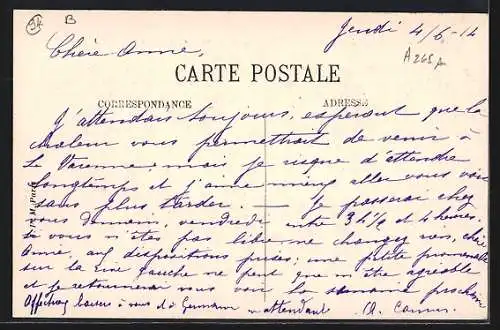 34
B
Jeudi 4/6-14
A 265 A
Chère Annie,
CARTE POSTALE
CORRESPONDANCE
ADRESSE
J'attendais toujours, espérant que la
chaleur vous permettrait de venir à
la Varenne, mais je risque d'attendre
longtemps et j'aime mieux aller vous voir
sans plus tarder. — Je passerai chez
vous demain, vendredi entre 3h 1/2 et 4 heures.
Si vous n'êtes pas libre ne changez rien, chère
Annie, aux dispositions prises; une petite promenade
sur la rive gauche ne peut que m'être agréable
et je retournerai vous voir la semaine prochaine
Affectueux baisers à vous & à Germaine en attendant
M. Paris